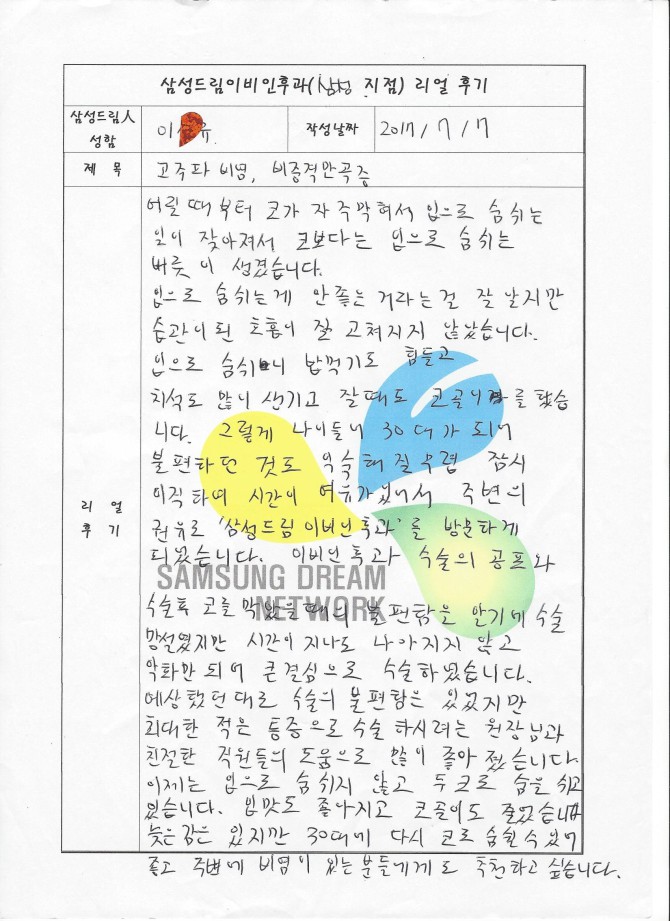 삼성드림이비인후과(삼성 지점) 리얼 후기
삼성드림人 성함
이 유
작성날짜
2017/7/7
제 목
고주파 비염, 비중격만곡증
리 얼 후 기
어릴 때부터 코가 자주막혀서 입으로 숨쉬는
일이 잦아져서 코보다는 입으로 숨쉬는
버릇이 생겼습니다.
입으로 숨쉬는게 안좋은 거라는걸 잘 알지만
습관이된 호흡이 잘 고쳐지지 않았습니다.
입으로 숨쉬니 밥먹기도 힘들고
치석도 많이 생기고 잘때도 코골이를 했습
니다. 그렇게 나이들어 30대가 되어
불편하던 것도 익숙해질무렵 잠시
이직하며 시간이 여유가있어서 주변의
권유로 '삼성드림이비인후과'를 방문하게
되었습니다. 이비인후과 수술의 공포와
SAMSUNG DREAM
NETWORK
수술후 코를막았을때의 불편함을 알기에 수술
망설였지만 시간이 지나도 나아지지 않고
악화만 되어 큰결심으로 수술하였습니다.
예상했던대로 수술의 불편함은 있었지만
최대한 적은 통증으로 수술 하시려는 원장님과
친절한 직원들의 도움으로 많이 좋아졌습니다.
이제는 입으로 숨쉬지 않고 두코로 숨을 쉬고
있습니다. 입맛도 좋아지고 코골이도 줄었습니다
늦은감은 있지만 30대에 다시 코로 숨쉴수있어
좋고 주변에 비염이 있는 분들에게도 추천하고 싶습니다.